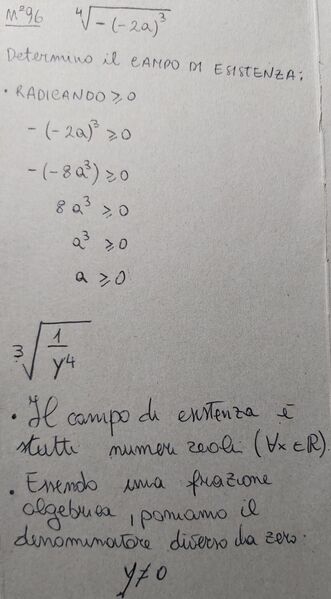 M°96 ⁴√-(-2a)³
Determino il CAMPO DI ESISTENZA:
• RADICANDO ⩾ 0
-(-2a)³ ⩾ 0
-(-8a³) ⩾ 0
8a³ ⩾ 0
a³ ⩾ 0
a ⩾ 0
³√1/y⁴
• Il campo di esistenza è
tutti numeri reali (∀x ∈ ℝ).
• Essendo una frazione
algebrica, poniamo il
denominatore diverso da zero:
y ≠ 0